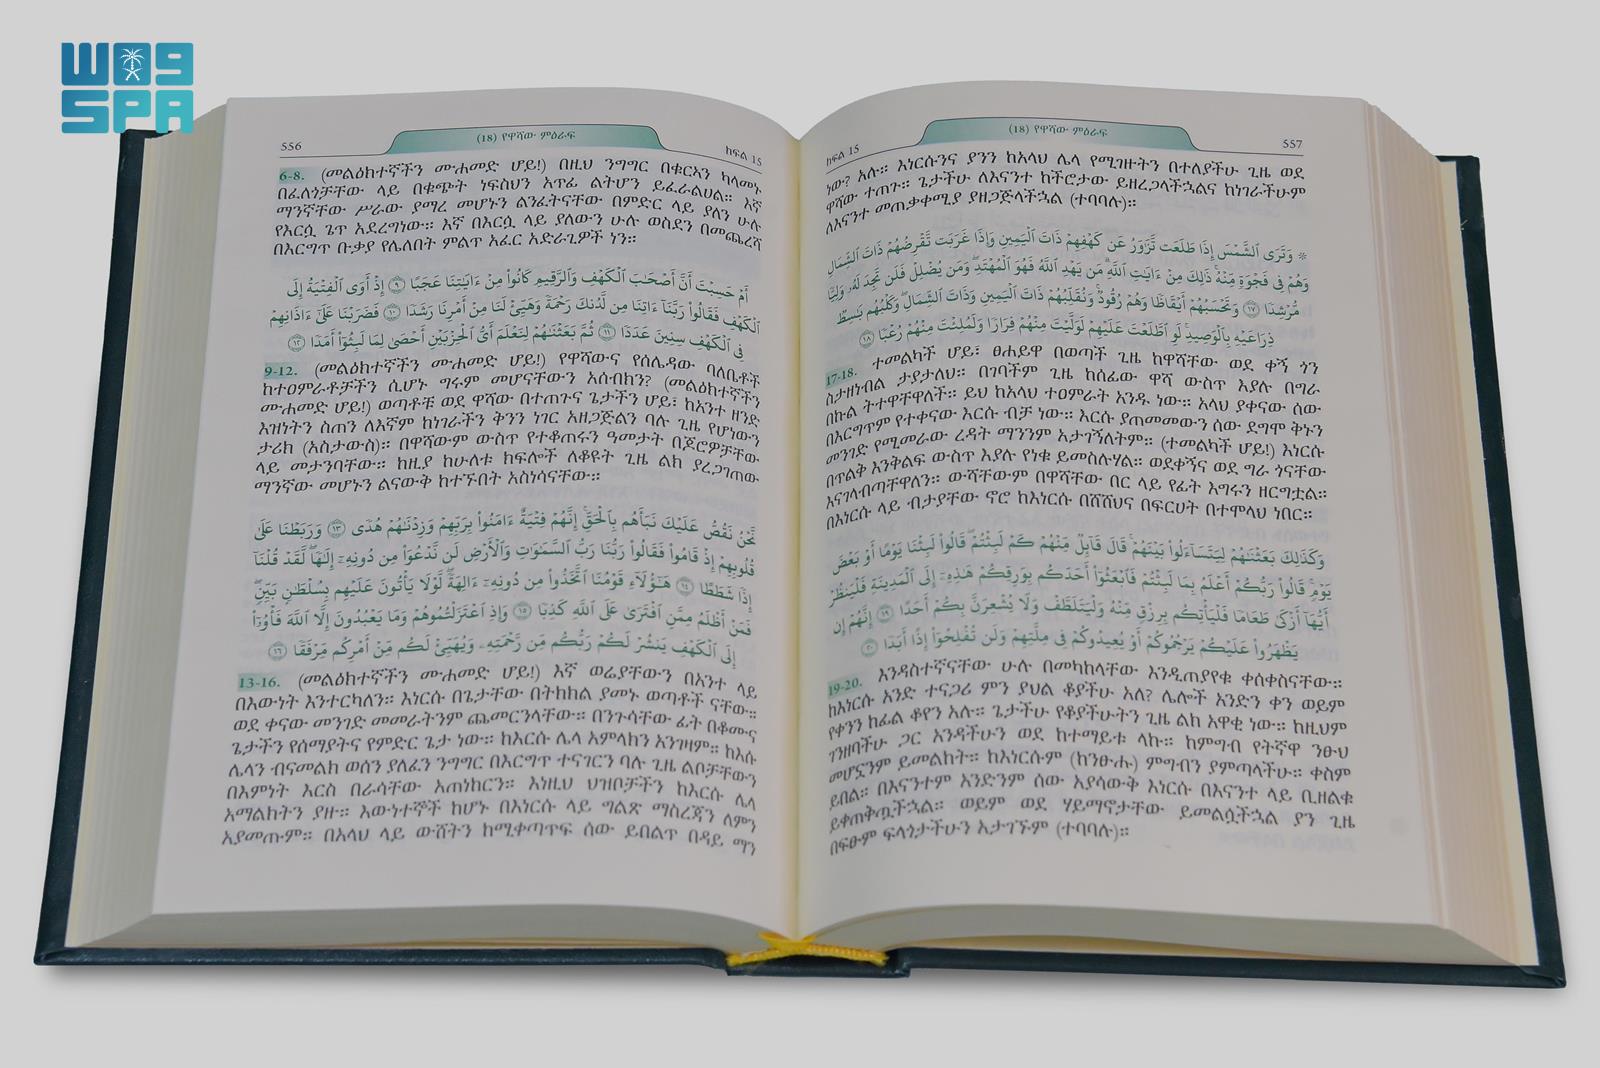 واس
SPA
556
(18) የዋሻው ምዕራፍ
ክፍል 15
6-8. (መልዕክተኛችን ሙሐመድ ሆይ!) በዚህ ንግግር በቁርኣን ካላመኑ
በፈለጎቻቸው ላይ በቁጭት ነፍስህን አጥፊ ልትሆን ይፈራልሀል። እኛ
ማንኛቸው ሥራው ያማረ መሆኑን ልንፈትናቸው በምድር ላይ ያለን ሁሉ
የእርሷ ጌጥ አደረግነው። እኛ በእርሷ ላይ ያለውን ሁሉ ወስደን በመጨረሻ
በእርግጥ ቡቃያ የሌለበት ምልጥ አፈር አድራጊዎች ነን።
أَمْ حَسِبْتَ أَنَّ أَصْحَٰبَ ٱلْكَهْفِ وَٱلرَّقِيمِ كَانُوا۟ مِنْ ءَايَٰتِنَا عَجَبًا ٩ إِذْ أَوَى ٱلْفِتْيَةُ إِلَى
ٱلْكَهْفِ فَقَالُوا۟ رَبَّنَآ ءَاتِنَا مِن لَّدُنكَ رَحْمَةً وَهَيِّئْ لَنَا مِنْ أَمْرِنَا رَشَدًا ١٠ فَضَرَبْنَا عَلَىٰٓ ءَاذَانِهِمْ
فِى ٱلْكَهْفِ سِنِينَ عَدَدًا ١١ ثُمَّ بَعَثْنَٰهُمْ لِنَعْلَمَ أَىُّ ٱلْحِزْبَيْنِ أَحْصَىٰ لِمَا لَبِثُوٓا۟ أَمَدًا ١٢
9-12. (መልዕክተኛችን ሙሐመድ ሆይ!) የዋሻውና የሰሌዳው ባለቤቶች
ከተዐምራቶቻችን ሲሆኑ ግሩም መሆናቸውን አሰብክን? (መልዕክተኛችን
ሙሐመድ ሆይ!) ወጣቶቹ ወደ ዋሻው በተጠጉና ጌታችን ሆይ፣ ከአንተ ዘንድ
እዝነትን ስጠን ለእኛም ከነገራችን ቅንን ነገር አዘጋጅልን ባሉ ጊዜ የሆነውን
ታሪክ (አስታውስ)። በዋሻውም ውስጥ የተቆጠሩን ዓመታት በጆሮዎቻቸው
ላይ መታንባቸው። ከዚያ ከሁለቱ ክፍሎች ለቆዩት ጊዜ ልክ ያረጋገጠው
ማንኛው መሆኑን ልናውቅ ከተኙበት አስነሳናቸው።
نَّحْنُ نَقُصُّ عَلَيْكَ نَبَأَهُم بِٱلْحَقِّ ۚ إِنَّهُمْ فِتْيَةٌ ءَامَنُوا۟ بِرَبِّهِمْ وَزِدْنَٰهُمْ هُدًى ١٣ وَرَبَطْنَا عَلَىٰ
قُلُوبِهِمْ إِذْ قَامُوا۟ فَقَالُوا۟ رَبُّنَا رَبُّ ٱلسَّمَٰوَٰتِ وَٱلْأَرْضِ لَن نَّدْعُوَا۟ مِن دُونِهِۦٓ إِلَٰهًا ۖ لَّقَدْ قُلْنَآ
إِذًا شَطَطًا ١٤ هَٰٓؤُلَآءِ قَوْمُنَا ٱتَّخَذُوا۟ مِن دُونِهِۦٓ ءَالِهَةً ۖ لَّوْلَا يَأْتُونَ عَلَيْهِم بِسُلْطَٰنٍۭ بَيِّنٍ ۖ
فَمَنْ أَظْلَمُ مِمَّنِ ٱفْتَرَىٰ عَلَى ٱللَّهِ كَذِبًا ١٥ وَإِذِ ٱعْتَزَلْتُمُوهُمْ وَمَا يَعْبُدُونَ إِلَّا ٱللَّهَ فَأْوُۥٓا۟
إِلَى ٱلْكَهْفِ يَنشُرْ لَكُمْ رَبُّكُم مِّن رَّحْمَتِهِۦ وَيُهَيِّئْ لَكُم مِّنْ أَمْرِكُم مِّرْفَقًا ١٦
13-16. (መልዕክተኛችን ሙሐመድ ሆይ!) እኛ ወሬያቸውን በአንተ ላይ
በእውነት እንተርካለን። እነርሱ በጌታቸው በትክክል ያመኑ ወጣቶች ናቸው።
ወደ ቀናው መንገድ መመራትንም ጨመርንላቸው። በንጉሳቸው ፊት በቆሙና
ጌታችን የሰማያትና የምድር ጌታ ነው። ከእርሱ ሌላ አምላክን አንገዛም። ከእሱ
ሌላን ብናመልክ ወሰን ያለፈን ንግግር በእርግጥ ተናገርን ባሉ ጊዜ ልቦቻቸውን
በእምነት እርስ በራሳቸው አጠነከርን። እነዚህ ህዝቦቻችን ከእርሱ ሌላ
አማልክትን ያዙ። እውነተኞች ከሆኑ በእነርሱ ላይ ግልጽ ማስረጃን ለምን
አያመጡም። በአላህ ላይ ውሸትን ከሚቀጣጥፍ ሰው ይበልጥ በዳይ ማን
ክፍል 15
(18) የዋሻው ምዕራፍ
557
ነው? አሉ። እነርሱንና ያንን ከአላህ ሌላ የሚገዙትን በተለያችሁ ጊዜ ወደ
ዋሻው ተጠጉ። ጌታችሁ ለእናንተ ከችሮታው ይዘረጋላችኋልና ከነገራችሁም
ለእናንተ መጠቃቀሚያ ያዘጋጅላችኋል (ተባባሉ)።
* وَتَرَى ٱلشَّمْسَ إِذَا طَلَعَت تَّزَٰوَرُ عَن كَهْفِهِمْ ذَاتَ ٱلْيَمِينِ وَإِذَا غَرَبَت تَّقْرِضُهُمْ ذَاتَ ٱلشِّمَالِ
وَهُمْ فِى فَجْوَةٍ مِّنْهُ ۚ ذَٰلِكَ مِنْ ءَايَٰتِ ٱللَّهِ ۗ مَن يَهْدِ ٱللَّهُ فَهُوَ ٱلْمُهْتَدِ ۖ وَمَن يُضْلِلْ فَلَن تَجِدَ لَهُۥ وَلِيًّا
مُّرْشِدًا ١٧ وَتَحْسَبُهُمْ أَيْقَاظًا وَهُمْ رُقُودٌ ۚ وَنُقَلِّبُهُمْ ذَاتَ ٱلْيَمِينِ وَذَاتَ ٱلشِّمَالِ ۖ وَكَلْبُهُم بَٰسِطٌ
ذِرَاعَيْهِ بِٱلْوَصِيدِ ۚ لَوِ ٱطَّلَعْتَ عَلَيْهِمْ لَوَلَّيْتَ مِنْهُمْ فِرَارًا وَلَمُلِئْتَ مِنْهُمْ رُعْبًا ١٨
17-18. ተመልካች ሆይ፣ ፀሐይዋ በወጣች ጊዜ ከዋሻቸው ወደ ቀኝ ጎን
ስታዘነብል ታያታለህ። በገባችም ጊዜ ከሰፊው ዋሻ ውስጥ እያሉ በግራ
በኩል ትተዋቸዋለች። ይህ ከአላህ ተዐምራት አንዱ ነው። አላህ ያቀናው ሰው
በእርግጥም የተቀናው እርሱ ብቻ ነው። እርሱ ያጠመመውን ሰው ደግሞ ቅኑን
መንገድ የሚመራው ረዳት ማንንም አታገኝለትም። (ተመልካች ሆይ!) እነርሱ
በጥልቅ እንቅልፍ ውስጥ እያሉ የነቁ ይመስሉሃል። ወደቀኝና ወደ ግራ ጎናቸው
እናገላብጣቸዋለን። ውሻቸውም በዋሻቸው በር ላይ የፊት እግሩን ዘርግቷል።
በእነርሱ ላይ ብታያቸው ኖሮ ከእነርሱ በሸሸህና በፍርሀት በተሞላህ ነበር።
وَكَذَٰلِكَ بَعَثْنَٰهُمْ لِيَتَسَآءَلُوا۟ بَيْنَهُمْ ۚ قَالَ قَآئِلٌ مِّنْهُمْ كَمْ لَبِثْتُمْ ۖ قَالُوا۟ لَبِثْنَا يَوْمًا أَوْ بَعْضَ
يَوْمٍ ۚ قَالُوا۟ رَبُّكُمْ أَعْلَمُ بِمَا لَبِثْتُمْ فَٱبْعَثُوٓا۟ أَحَدَكُم بِوَرِقِكُمْ هَٰذِهِۦٓ إِلَى ٱلْمَدِينَةِ فَلْيَنظُرْ
أَيُّهَآ أَزْكَىٰ طَعَامًا فَلْيَأْتِكُم بِرِزْقٍ مِّنْهُ وَلْيَتَلَطَّفْ وَلَا يُشْعِرَنَّ بِكُمْ أَحَدًا ١٩ إِنَّهُمْ إِن
يَظْهَرُوا۟ عَلَيْكُمْ يَرْجُمُوكُمْ أَوْ يُعِيدُوكُمْ فِى مِلَّتِهِمْ وَلَن تُفْلِحُوٓا۟ إِذًا أَبَدًا ٢٠
19-20. እንዳስተኛናቸው ሁሉ በመካከላቸው እንዲጠያየቁ ቀሰቀስናቸው።
ከእነርሱ አንድ ተናጋሪ ምን ያህል ቆያችሁ አለ? ሌሎች አንድን ቀን ወይም
የቀንን ከፊል ቆየን አሉ። ጌታችሁ የቆያችሁትን ጊዜ ልክ አዋቂ ነው። ከዚህም
ገንዘባችሁ ጋር አንዳችሁን ወደ ከተማይቱ ላኩ። ከምግብ የትኛዋ ንፁህ
መሆኗንም ይመልከት። ከእነርሱም (ከንፁሑ) ምግብን ያምጣላችሁ። ቀስም
ይበል። በእናንተም አንድንም ሰው አያሳውቅ እነርሱ በእናንተ ላይ ቢዘልቁ
ይቀጠቅጧችኋል። ወይም ወደ ሃይማኖታቸው ይመልሷችኋል ያን ጊዜ
በፍፁም ፍላጎታችሁን አታገኙም (ተባባሉ)።